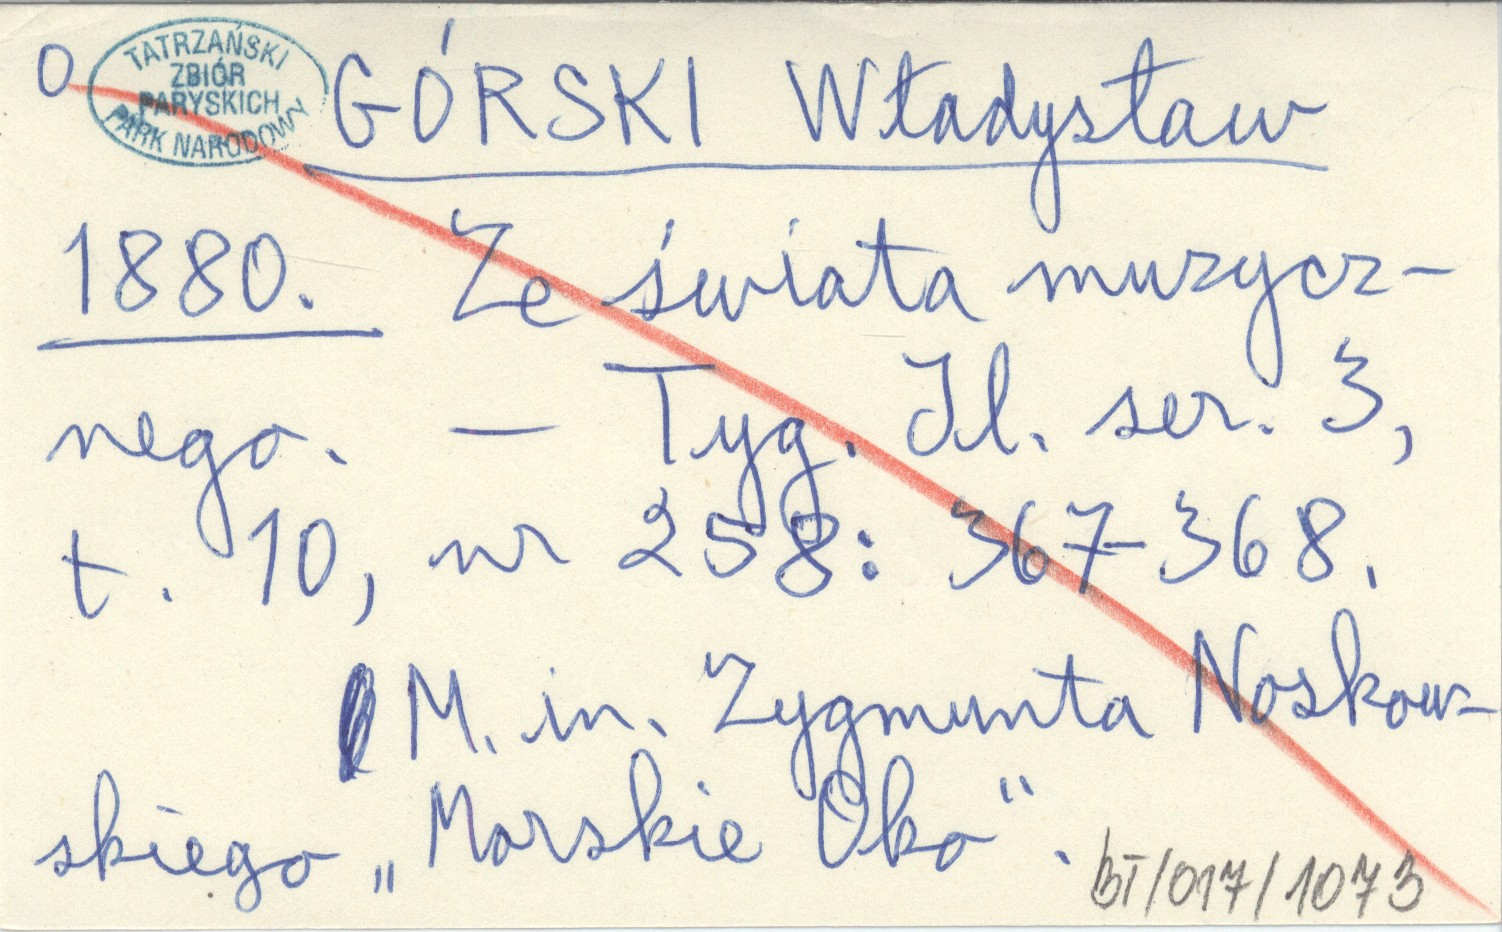 O
TATRZAŃSKI
ZBIÓR
PARYSKICH
PARK NARODOWY
GÓRSKI Władysław
1880. Ze świata muzycz-
nego. — Tyg. Il. ser. 3,
t. 10, nr 258: 367-368.
M. in. Zygmunta Noskow-
skiego „Morskie Oko".
BT/017/1073